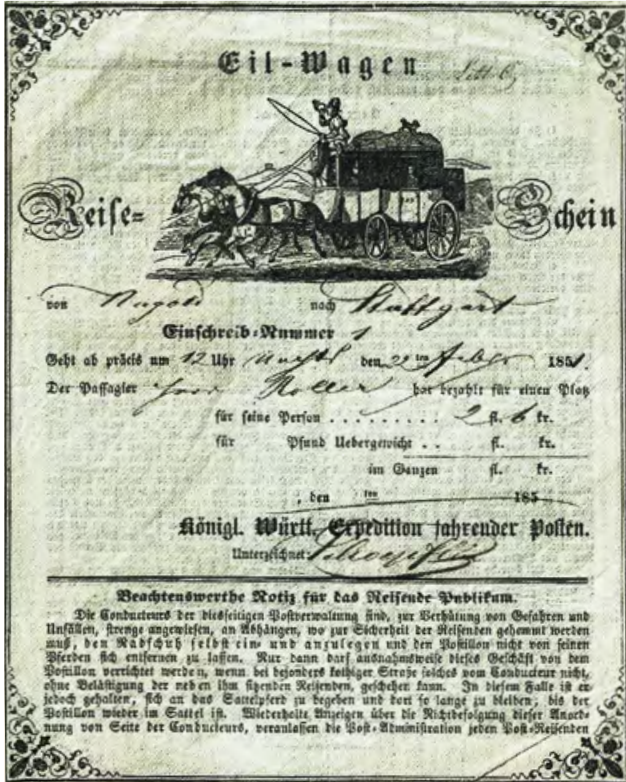 Eil-Wagen
Reise-Schein
von Nagold nach Stuttgart
Einschreib-Nummer 1
Geht ab präcis um 12 Uhr Nachts den 22 ten Febr 1851.
Der Passagier Herr Roller hat bezahlt für einen Platz
für seine Person . . . . . . . . . 2 fl. 6 kr.
für Pfund Uebergewicht . . fl. kr.
im Ganzen fl. kr.
, den ten 185
Königl. Württ. Expedition fahrender Posten.
Unterzeichnet:
Beachtenswerthe Notiz für das Reisende Publikum.
Die Conducteurs der diesseitigen Postverwaltung sind, zur Verhütung von Gefahren und
Unfällen, strenge angewiesen, an Abhängen, wo zur Sicherheit der Reisenden gehemmt werden
muß, den Radschuh selbst ein- und anzulegen und den Postillon nicht von seinen
Pferden sich entfernen zu lassen. Nur dann darf ausnahmsweise dieses Geschäft von dem
Postillon verrichtet werden, wenn bei besonders kothiger Straße solches vom Conducteur nicht,
ohne Belästigung der neben ihm sitzenden Reisenden, geschehen kann. In diesem Falle ist er
jedoch gehalten, sich an das Sattelpferd zu begeben und dort so lange zu bleiben, bis der
Postillon wieder im Sattel ist. Wiederholte Anzeigen über die Nichtbefolgung dieser Anord-
nung von Seite der Conducteurs, veranlassen die Post-Administration jeden Post-Reisenden